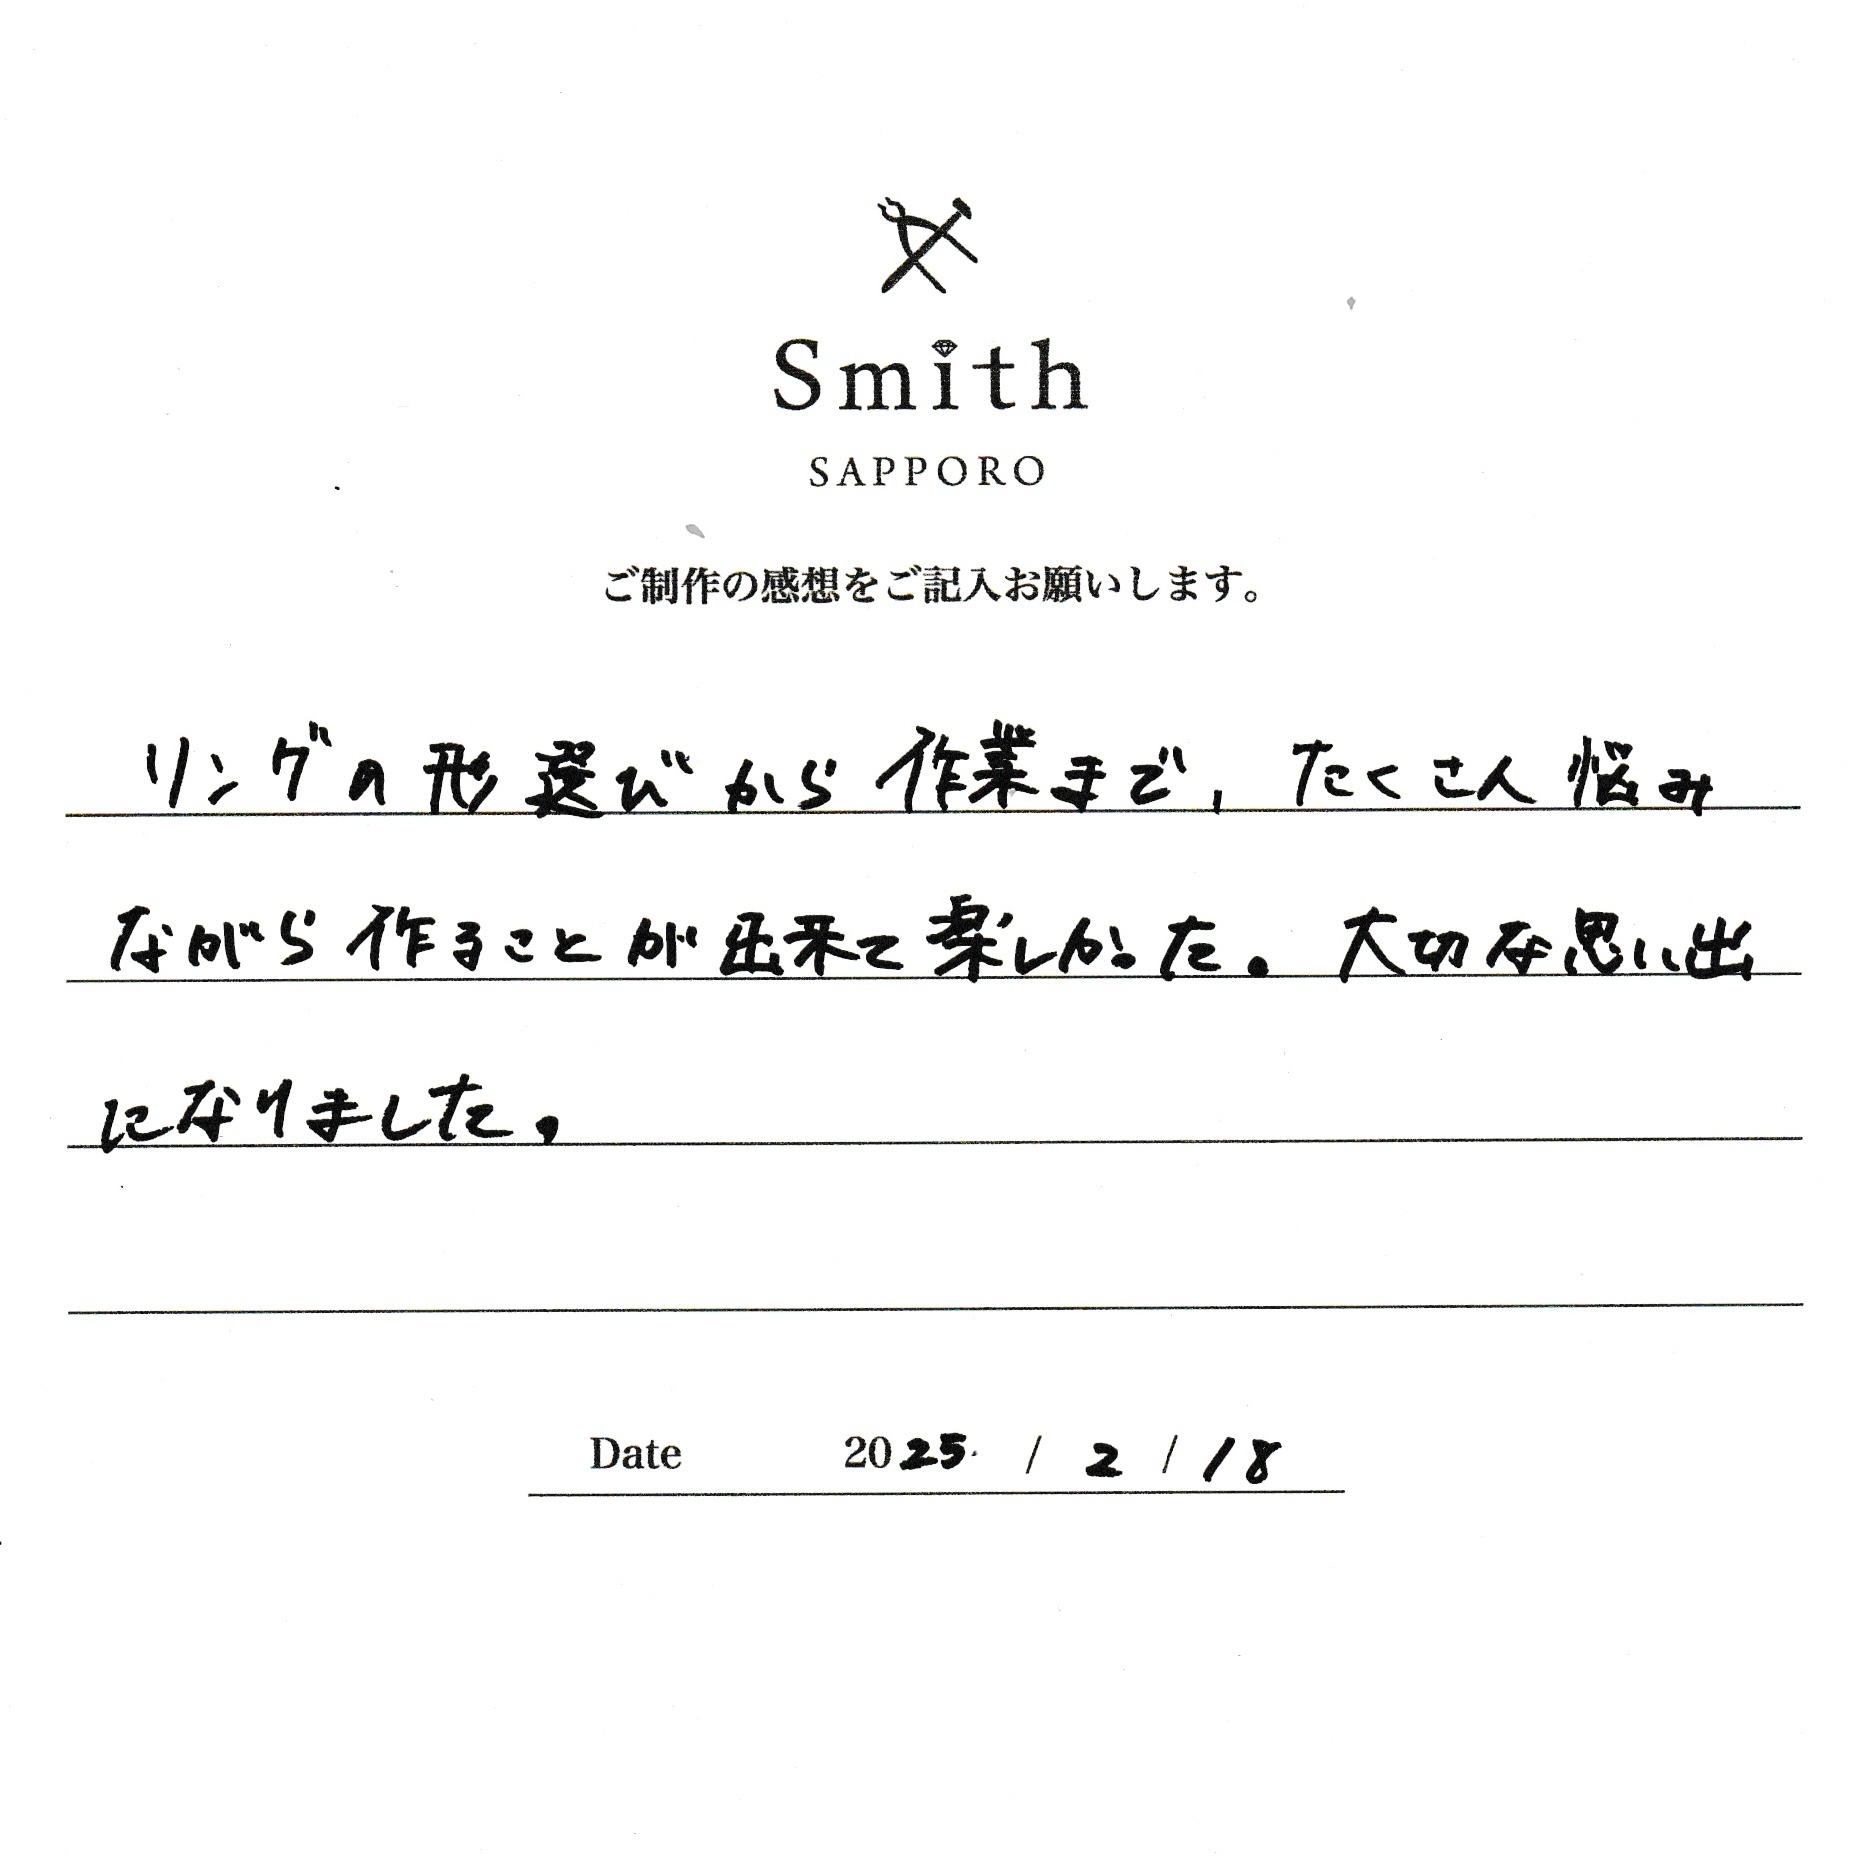 Smith
SAPPORO
ご制作の感想をご記入お願いします。
リングの形選びから作業まで、たくさん悩み
ながら作ることが出来て楽しかった。大切な思い出
になりました。
Date 2025 / 2 / 18